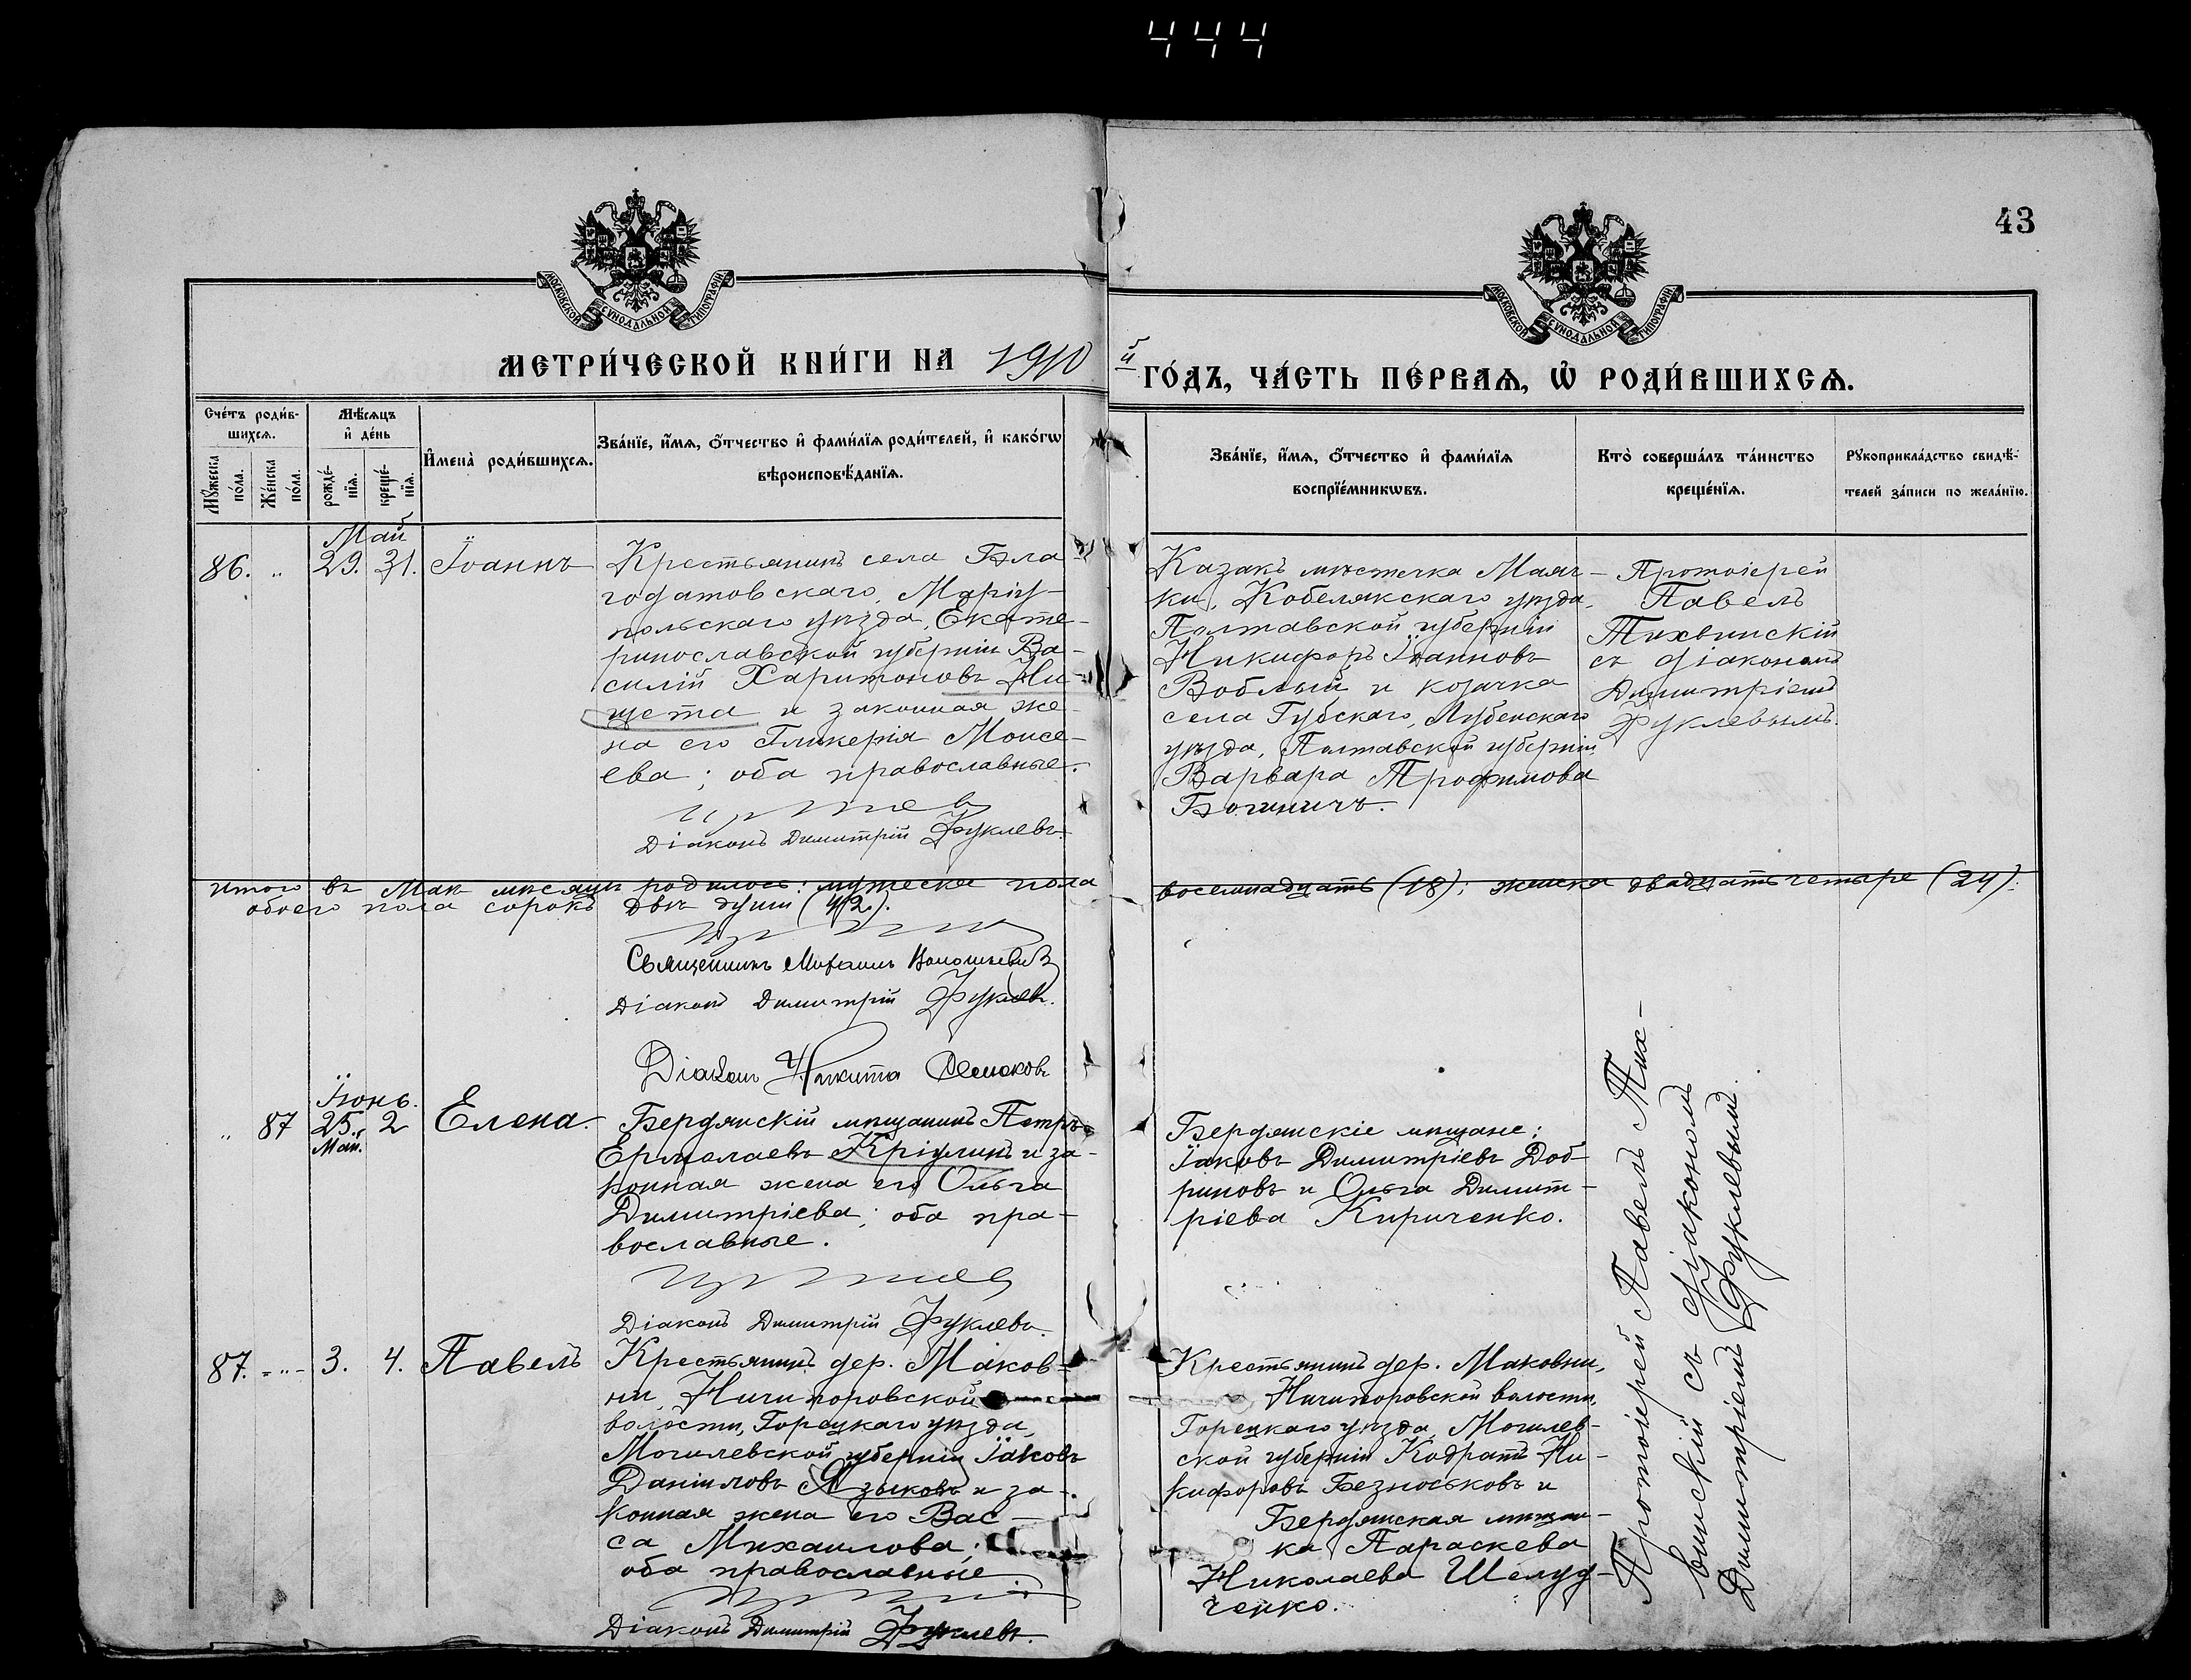 444
43
МОСКОВСКОЙ СѴНОДАЛЬНОЙ ТИПОГРАФІИ
МОСКОВСКОЙ СѴНОДАЛЬНОЙ ТИПОГРАФІИ
МЕТРИ́ЧЕСКОЙ КНИ́ГИ НА 1910
й ГО́ДЪ, ЧА́СТЬ ПЕ́РВАѦ, Ѡ҆ РОДИ́ВШИХСѦ.
Сче́тъ роди́в-
шихсѧ.
Мꙋжеска по́ла.
Же́нска по́ла.
Мѣ́сѧцъ
и҆ де́нь
рожде́-
нїѧ.
креще́-
нїѧ.
И҆мена̀ роди́вшихсѧ.
Зва́нїе, и҆́мѧ, ѻ҆́тчество и҆ фами́лїѧ роди́телей, и҆ како́гѡ
вѣроисповѣ́данїѧ.
Зва́нїе, и҆́мѧ, ѻ҆́тчество и҆ фами́лїѧ
воспрїе́мникѡвъ.
Кто̀ соверша́лъ та́инство
креще́нїѧ.
Рꙋкоприкла́дство свидѣ́-
телей за́писи по жела́нїю.
Май
86. „ 29. 31. Іоаннъ
Крестьянинъ села Бла-
годатовскаго, Маріу-
польскаго уѣзда, Екате-
ринославской губерніи Ва-
силій Харитоновъ Ни-
щета и законная же-
на его Гликерія Моисе-
ева; оба православные.
Діаконъ Димитрій Фуклевъ.
Казакъ мѣстечка Маяч-
ки, Кобелякскаго уѣзда,
Полтавской губерніи
Никифоръ Іоанновъ
Воблый и козачка
села Губскаго, Лубенскаго
уѣзда, Полтавской губерніи
Варвара Трофимова
Протоіерей
Павелъ
Тихвинскій
съ діакономъ
Димитріемъ
Фуклевымъ.
Итого въ Маѣ мѣсяцѣ родилось: мужеска пола восемнадцать (18): женска двадцать четыре (24):
обоего пола сорокъ двѣ души (42).
Священникъ Михаилъ
Діаконъ Димитрій Фуклевъ.
Діаконъ Никита
Іюнь.
„ 87 25. 2 Елена.
Май.
Бердянскій мѣщанинъ Петръ
Ермолаевъ и за-
конная жена его Ольга
Димитріева; оба пра-
вославные.
Діаконъ Димитрій Фуклевъ.
Бердянскіе мѣщане:
Іаковъ Димитріевъ Доб-
риновъ и Ольга Димит-
ріева Кириченко.
87. „ 3. 4. Павелъ
Крестьянинъ дер. Маков-
ни, Ничипоровской
волости, Горецкаго уѣзда,
Могилевской губерніи Іаковъ
Даніиловъ Языковъ и за-
конная жена его Вас-
са Михаилова;
оба православные.
Діаконъ Димитрій Фуклевъ.
Крестьянинъ дер. Маковни,
Ничипоровской волости,
Горецкаго уѣзда, Могилев-
ской губерніи Кодратъ Ни-
кифоровъ Безноськовъ и
Бердянская мѣщан-
ка Параскева
Николаева Шелуд-
ченко.
Протоіерей Павелъ Тих-
винскій съ діакономъ
Димитріемъ Фуклевымъ.